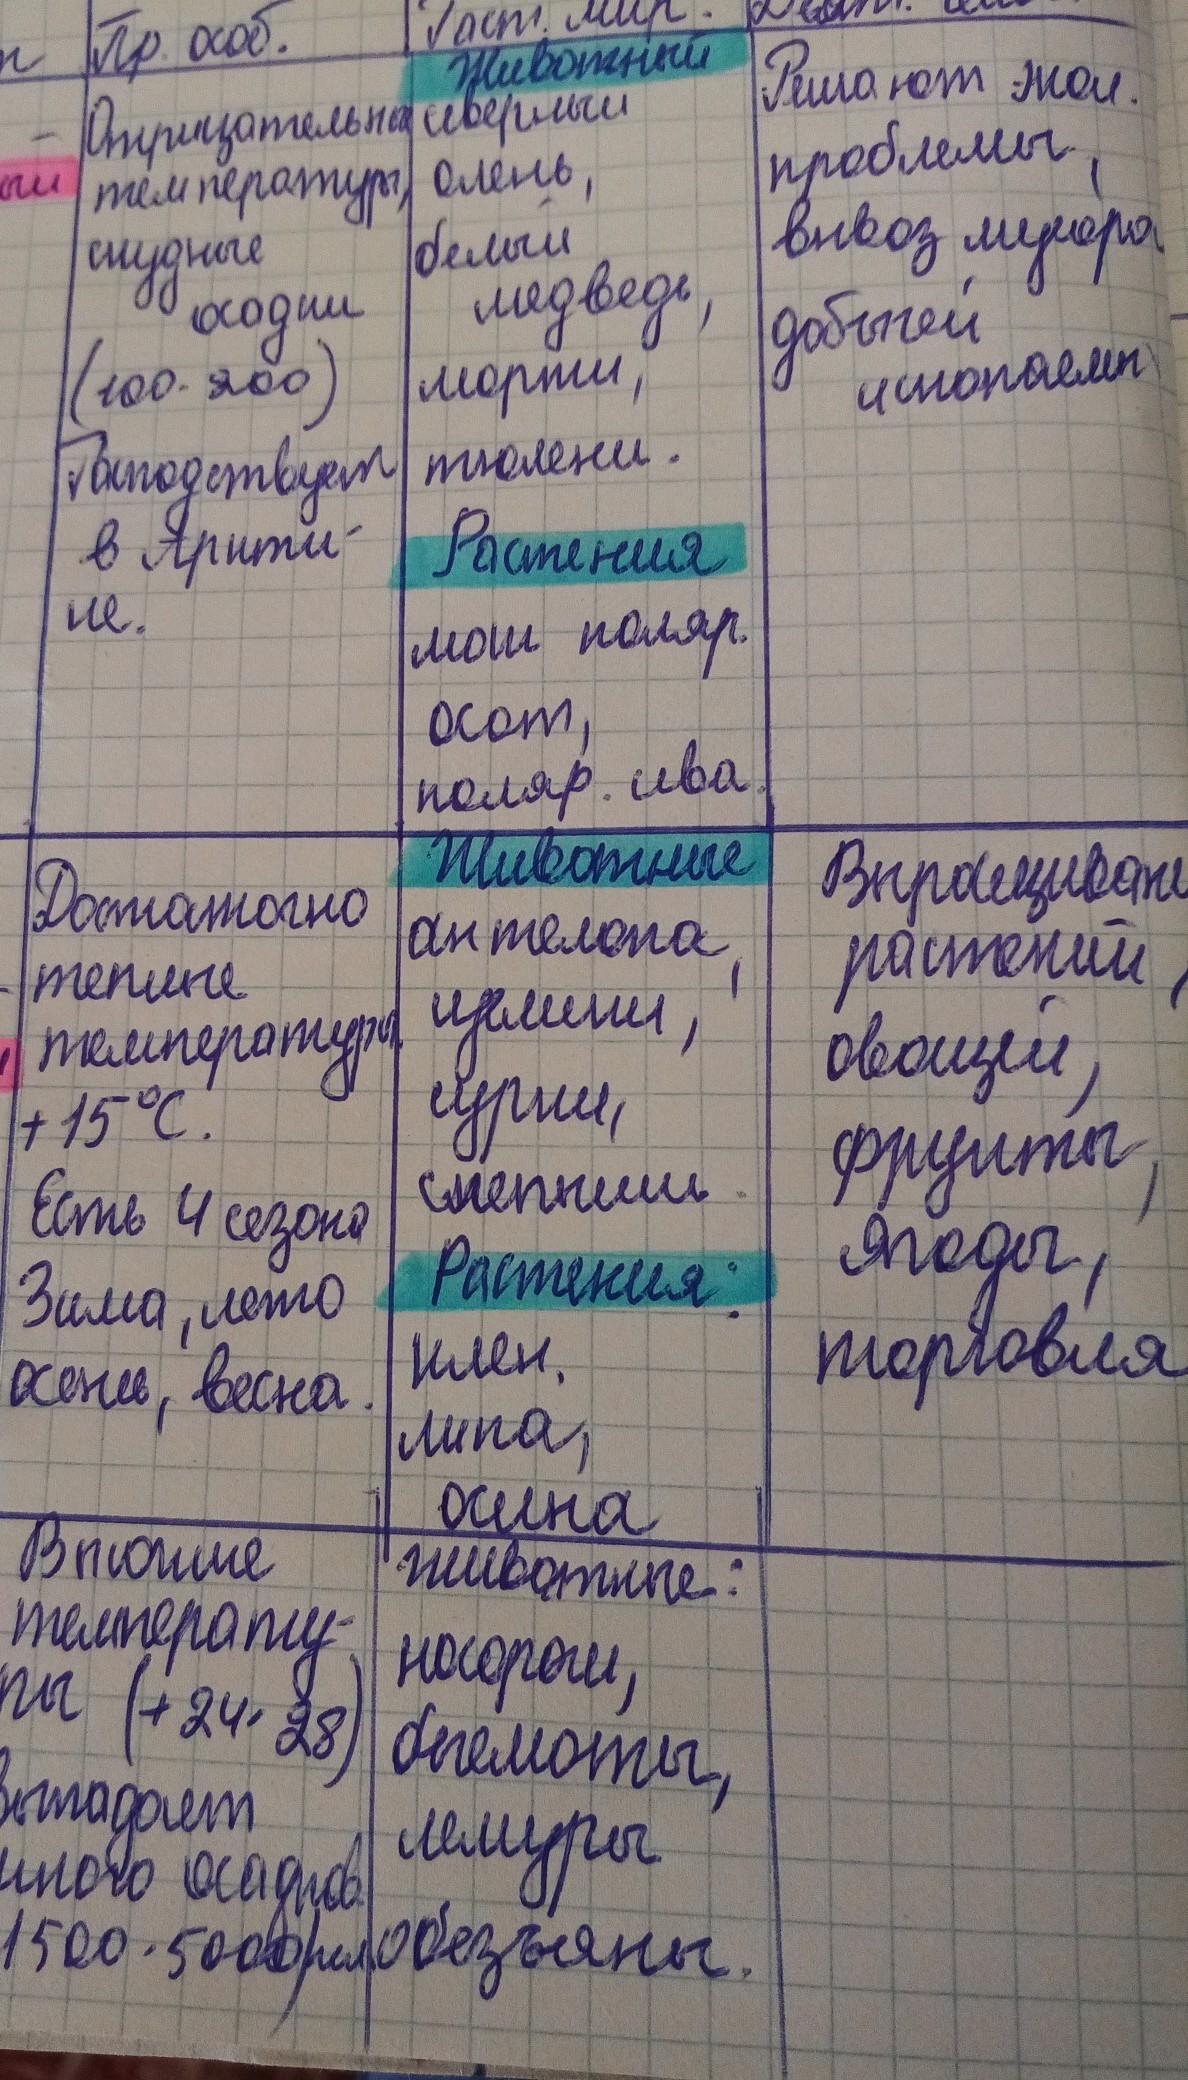 Пр. особ.
Раст. мир.
Отрицательные
температуры,
скудные
осадки
(100-200)
Господствует
в Аркти-
ке.
Животный
северный
олень,
белый
медведь,
моржи,
тюлени.
Растения
мох поляр.
осот,
поляр. ива.
Решают экол.
проблемы,
вывоз мусора
добычей
ископаемы
Достаточно
теплые
температуры
+15°С.
Есть 4 сезона
Зима, лето
осень, весна.
Животные
антилопа,
суслики,
сурки,
Растения:
клен.
липа,
осина
Выращивани
растений,
овощей,
фрукты,
ягоды,
торговля
Высокие
температу-
ры (+24-28)
выпадает
много осадков
1500-5000
животные:
носороги,
бегемоты,
лемуры
обезьяны.